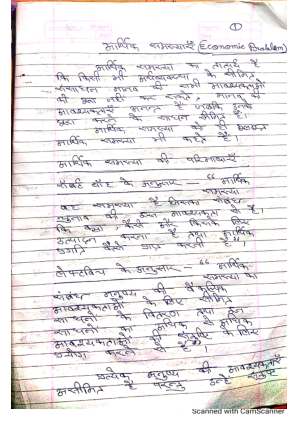 ①
आर्थिक समस्याएँ (Economic Problem)
आर्थिक समस्या का तात्पर्य है
कि किसी भी अर्थव्यवस्था के सीमित
संसाधन मानव की सभी आवश्यकताओं
को पूरा नहीं कर सकते। मानव की
आवश्यकताएँ अनन्त हैं जबकि उनके
पूरा करने के साधन सीमित हैं।
आर्थिक समस्या को ही
समस्या भी कहते हैं।
आर्थिक समस्या की परिभाषाएँ
के अनुसार — "आर्थिक
समस्या
वह समस्या है जिसका संबंध
चुनाव की आवश्यकता से है।
कि क्या, कैसे और किसके लिए
उत्पादन करना है तथा आर्थिक
प्रगति कैसे प्राप्त करनी है",
के अनुसार — "आर्थिक
समस्या का
संबंध मनुष्य की वैकल्पिक
आवश्यकताओं के लिए सीमित
साधनों के वितरण तथा इन
साधनों का अधिक से अधिक
आवश्यकताओं की संतुष्टि के लिए
प्रयोग करने से है"।
प्रत्येक मनुष्य की आवश्यकताएँ
असीमित हैं परन्तु उन्हें संतुष्ट
Scanned with CamScanner